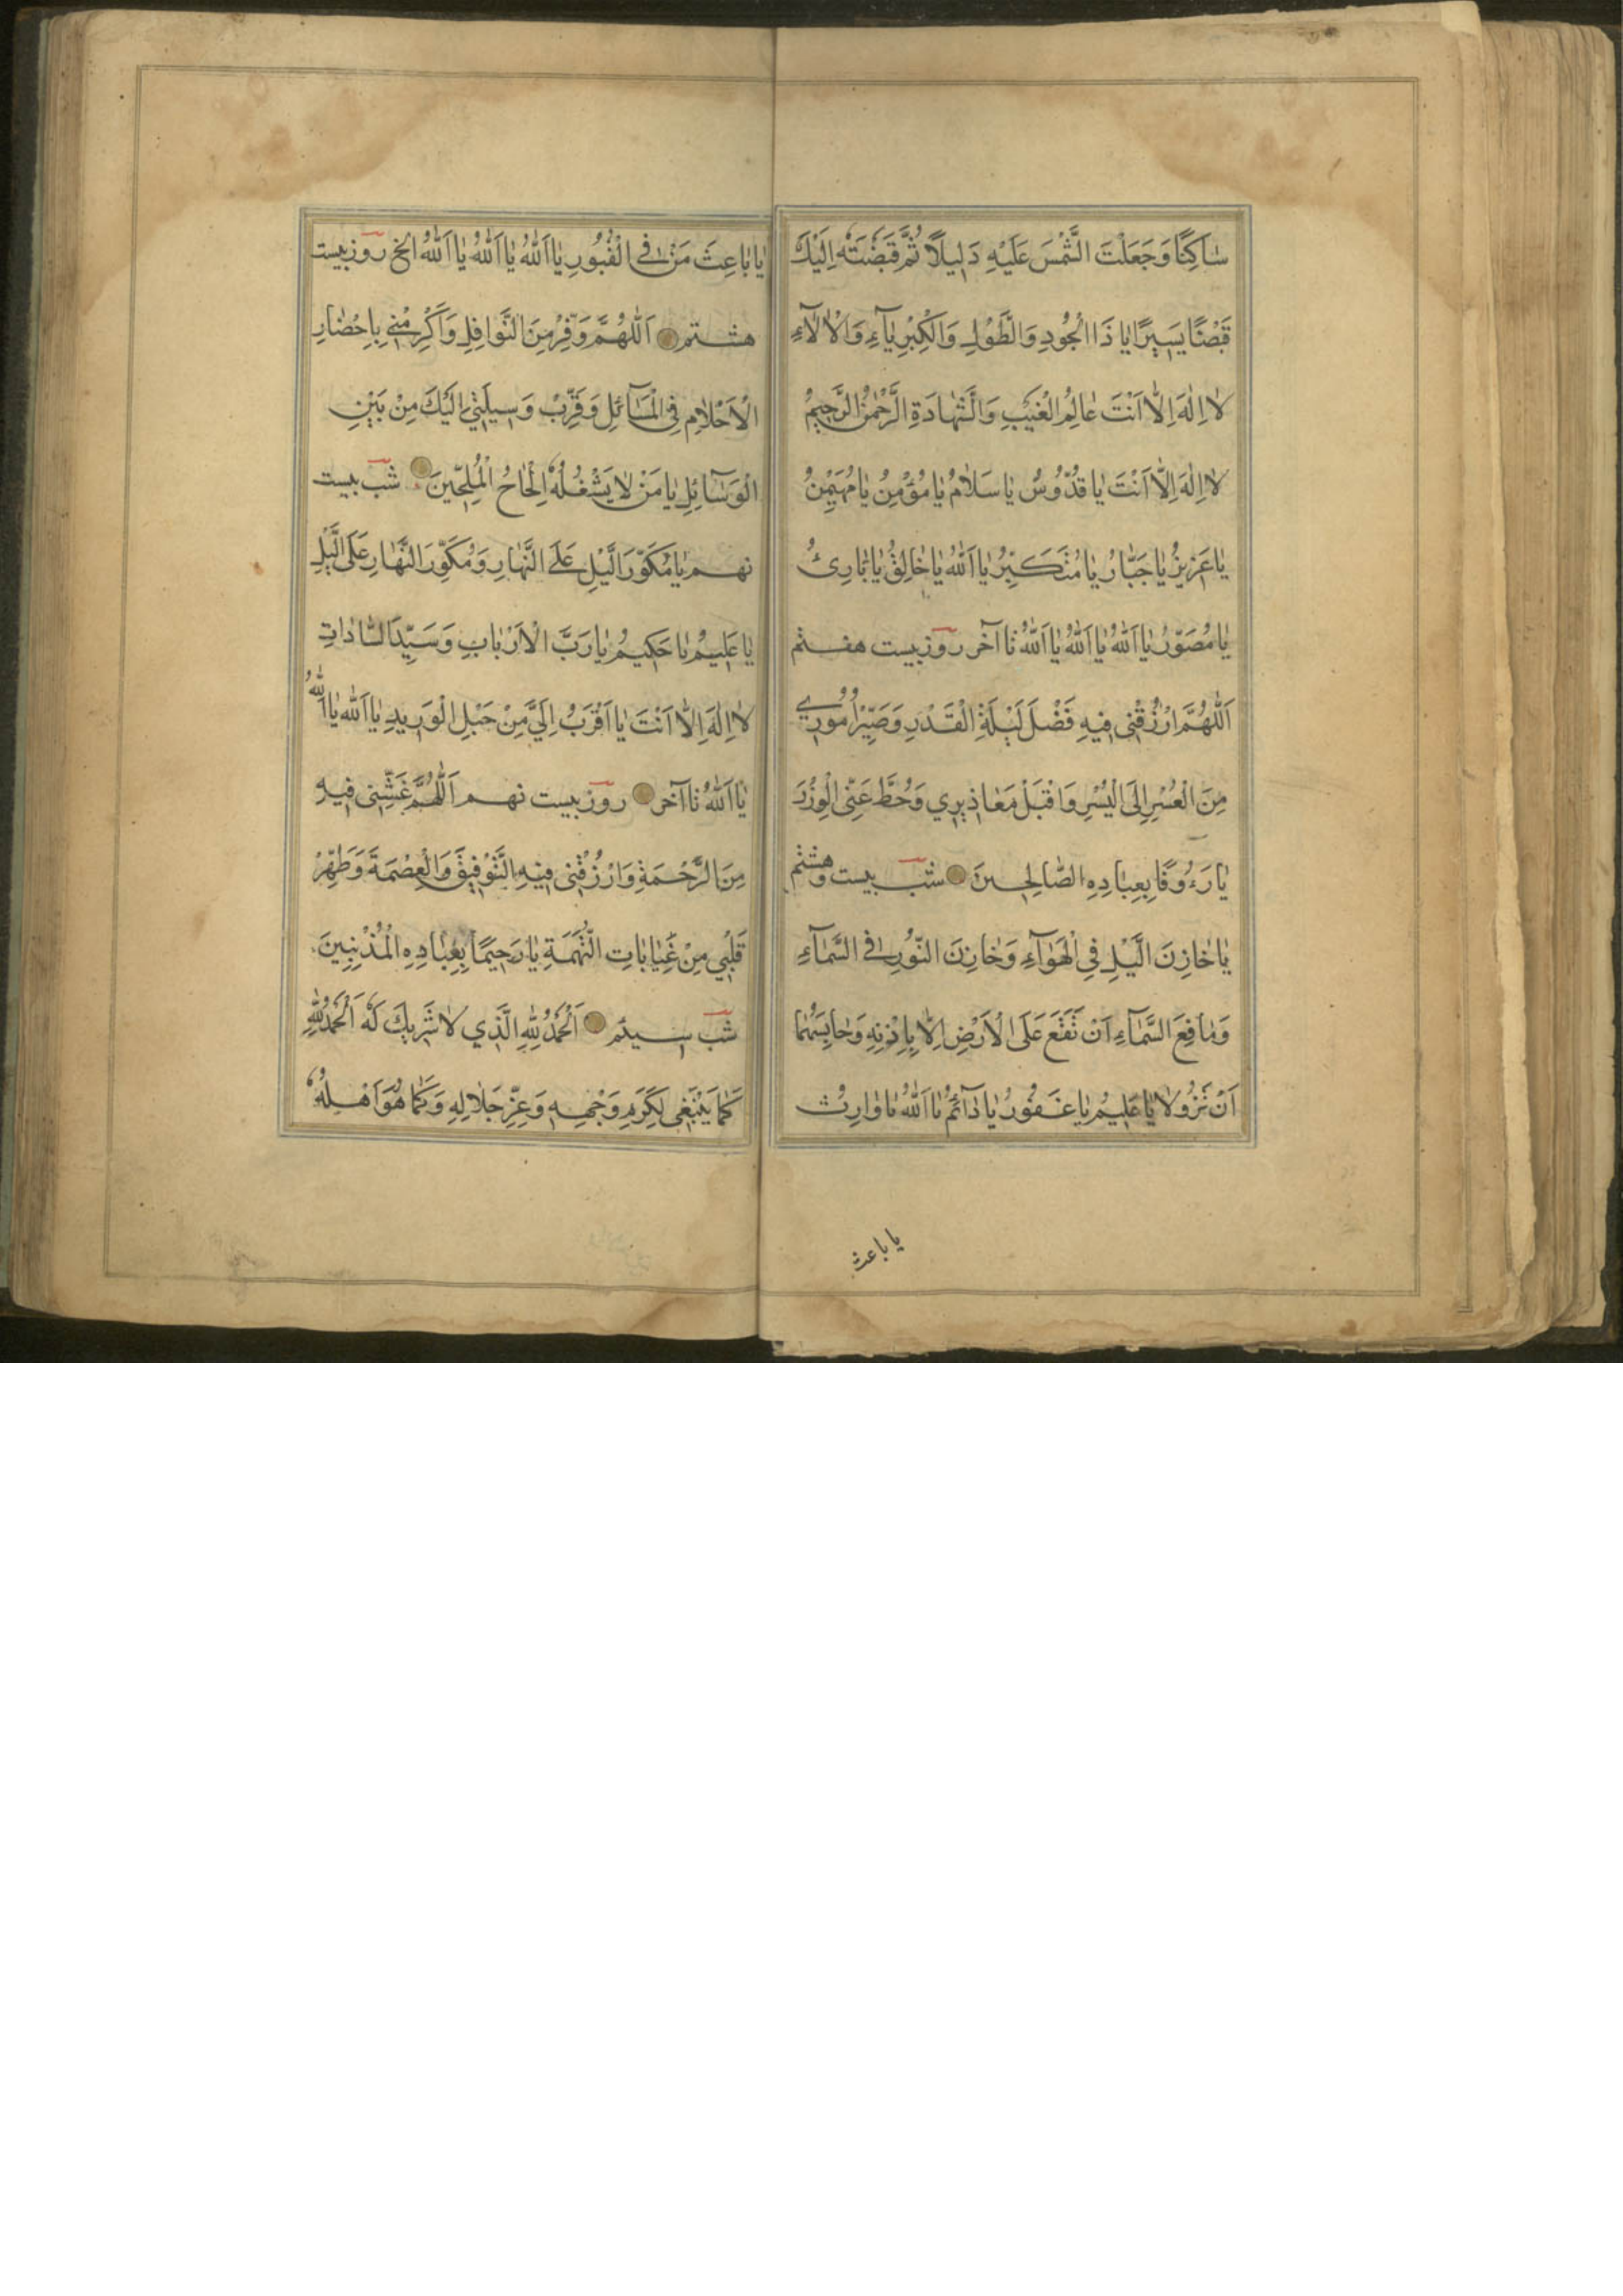 سٰاكِنًا وَجَعَلْتَ الشَّمْسَ عَلَيْهِ دَلِيلًا ثُمَّ قَبَضْتَهُ اِلَيْكَ
قَبْضًا يَسِيرًا يٰا ذَا الْجُودِ وَالطَّوْلِ وَالْكِبْرِيٰآءِ وَالْاٰلآءِ
لٰا اِلٰهَ اِلّٰا اَنْتَ عٰالِمُ الْغَيْبِ وَالشَّهٰادَةِ الرَّحْمٰنُ الرَّحِيمُ
لٰا اِلٰهَ اِلّٰا اَنْتَ يٰا قُدُّوسُ يٰا سَلٰامُ يٰا مُؤْمِنُ يٰا مُهَيْمِنُ
يٰا عَزِيزُ يٰا جَبّٰارُ يٰا مُتَكَبِّرُ يٰا اَللّٰهُ يٰا خٰالِقُ يٰا بٰارِئُ
يٰا مُصَوِّرُ يٰا اَللّٰهُ يٰا اَللّٰهُ يٰا اَللّٰهُ تا آخر روز بيست هفتم
اَللّٰهُمَّ ارْزُقْنِى فِيهِ فَضْلَ لَيْلَةِ الْقَدْرِ وَصَيِّرْ اُمُورِي
مِنَ الْعُسْرِ اِلَى الْيُسْرِ وَاقْبَلْ مَعٰاذِيرِي وَحُطَّ عَنِّى الْوِزْرَ
يٰا رَءُوفًا بِعِبٰادِهِ الصّٰالِحِينَ شب بيست وهشتم
يٰا خٰازِنَ الَّيْلِ فِي الْهَوٰآءِ وَخٰازِنَ النُّورِ فِي السَّمٰآءِ
وَمٰانِعَ السَّمٰآءِ اَنْ تَقَعَ عَلَى الْاَرْضِ اِلّٰا بِاِذْنِهِ وَحٰابِسَهُمٰا
اَنْ تَزُولٰا يٰا عَلِيمُ يٰا غَفُورُ يٰا دٰآئِمُ يٰا اَللّٰهُ يٰا وٰارِثُ
يا باعث
يٰا بٰاعِثَ مَنْ فِي الْقُبُورِ يٰا اَللّٰهُ يٰا اَللّٰهُ يٰا اَللّٰهُ الخ روز بيست
هشتم اَللّٰهُمَّ وَفِّرْ مِنَ النَّوٰافِلِ وَاَكْرِمْنِي بِاِحْضٰارِ
الْاَحْلٰامِ فِي الْمَسٰآئِلِ وَقَرِّبْ وَسِيلَتِي اِلَيْكَ مِنْ بَيْنِ
الْوَسٰآئِلِ يٰا مَنْ لٰا يَشْغُلُهُ اِلْحٰاحُ الْمُلِحِّينَ شب بيست
نهم يٰا مُكَوِّرَ الَّيْلِ عَلَى النَّهٰارِ وَمُكَوِّرَ النَّهٰارِ عَلَى الَّيْلِ
يٰا عَلِيمُ يٰا حَكِيمُ يٰا رَبَّ الْاَرْبٰابِ وَسَيِّدَ السّٰادٰاتِ
لٰا اِلٰهَ اِلّٰا اَنْتَ يٰا اَقْرَبُ اِلَيَّ مِنْ حَبْلِ الْوَرِيدِ يٰا اَللّٰهُ يٰا اَللّٰهُ
يٰا اَللّٰهُ تا آخر روز بيست نهم اَللّٰهُمَّ غَشِّنِى فِيهِ
مِنَ الرَّحْمَةِ وَارْزُقْنِى فِيهِ التَّوْفِيقَ وَالْعِصْمَةَ وَطَهِّرْ
قَلْبِي مِنْ غَيٰابٰاتِ التُّهَمَةِ يٰا رَحِيمًا بِعِبٰادِهِ الْمُذْنِبِينَ
شب سيئم اَلْحَمْدُ لِلّٰهِ الَّذِي لٰا شَرِيكَ لَهُ اَلْحَمْدُ لِلّٰهِ
كَمٰا يَنْبَغِى لِكَرَمِ وَجْهِهِ وَعِزِّ جَلٰالِهِ وَكَمٰا هُوَ اَهْلُهُ